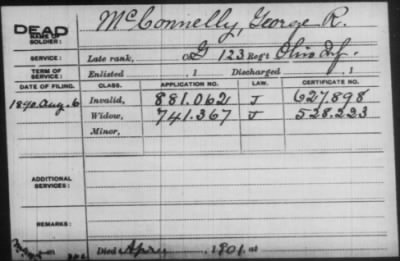 DEAD
NAME OF
SOLDIER:
McConnelly, George R.
SERVICE:
Late rank, Co G 123 Reg't Ohio Inf.
TERM OF
SERVICE:
Enlisted , 1 Discharged , 1
DATE OF FILING. CLASS. APPLICATION NO. LAW. CERTIFICATE NO.
1890 Aug. 6 Invalid, 881.062 J 627.898
Widow, 741.367 J 528.223
Minor,
ADDITIONAL
SERVICES:
REMARKS:
Died Apr 1901, at